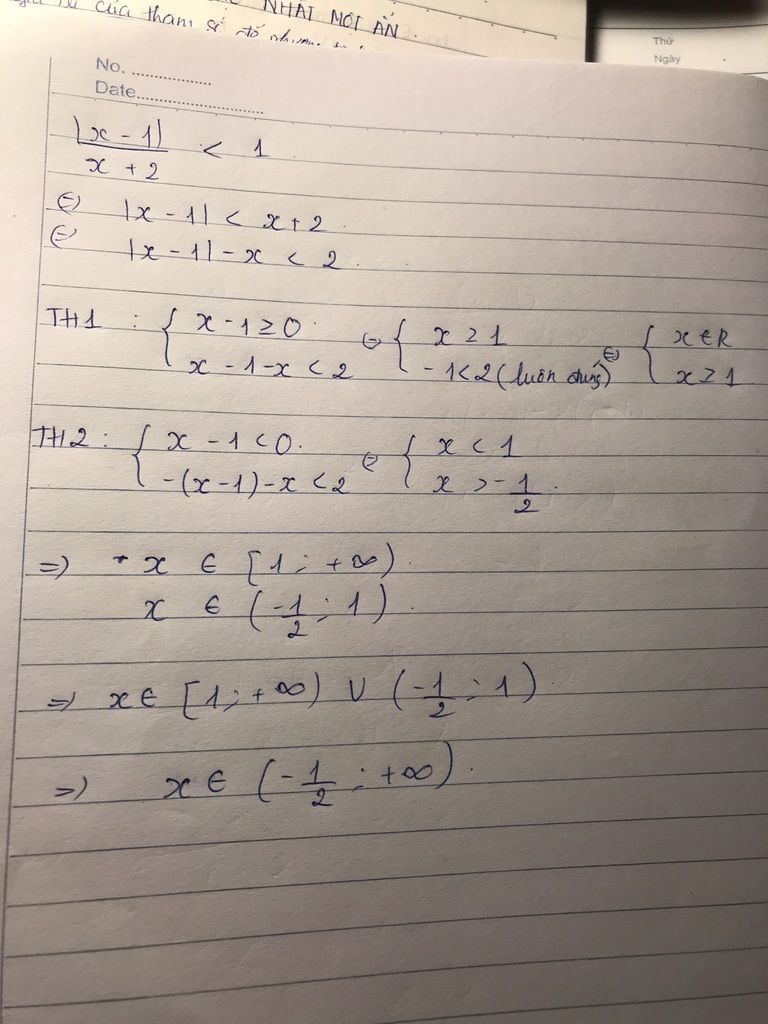 của tham số
NHẤT MỘT ẨN.
Thứ
Ngày
No. ...............
Date........................
|x - 1| / x + 2 < 1
⇔ |x - 1| < x + 2
⇔ |x - 1| - x < 2
TH1 : { x - 1 ≥ 0 ⇔ { x ≥ 1 ⇔ { x ∈ R
x - 1 - x < 2 - 1 < 2 (luôn đúng) x ≥ 1
TH2 : { x - 1 < 0 ⇔ { x < 1
-(x - 1) - x < 2 x > -1/2
=> x ∈ [1 ; +∞)
x ∈ (-1/2 ; 1)
=> x ∈ [1 ; +∞) ∪ (-1/2 ; 1)
=> x ∈ (-1/2 ; +∞)